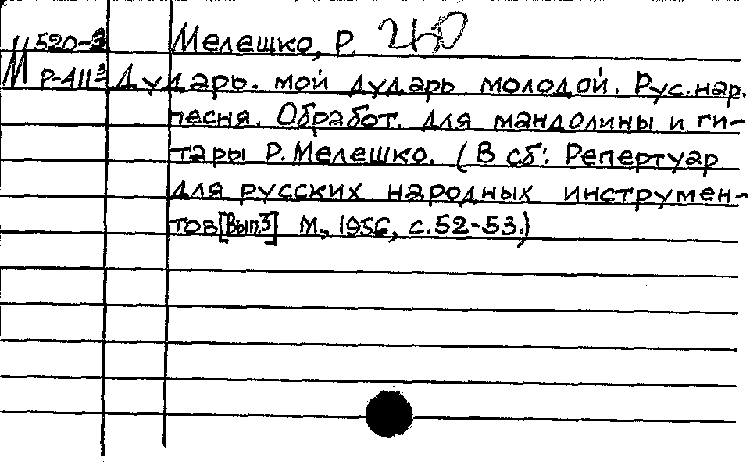 М 520-3 Мелешко, Р. 240
Р-411³ Дударь мой дударь молодой. Рус.нар.
песня. Обработ. для мандолины и ги-
тары Р.Мелешко. (В сб: Репертуар
для русских народных инструмен-
тов[Вып.3] М., 1956, с.52-53.)